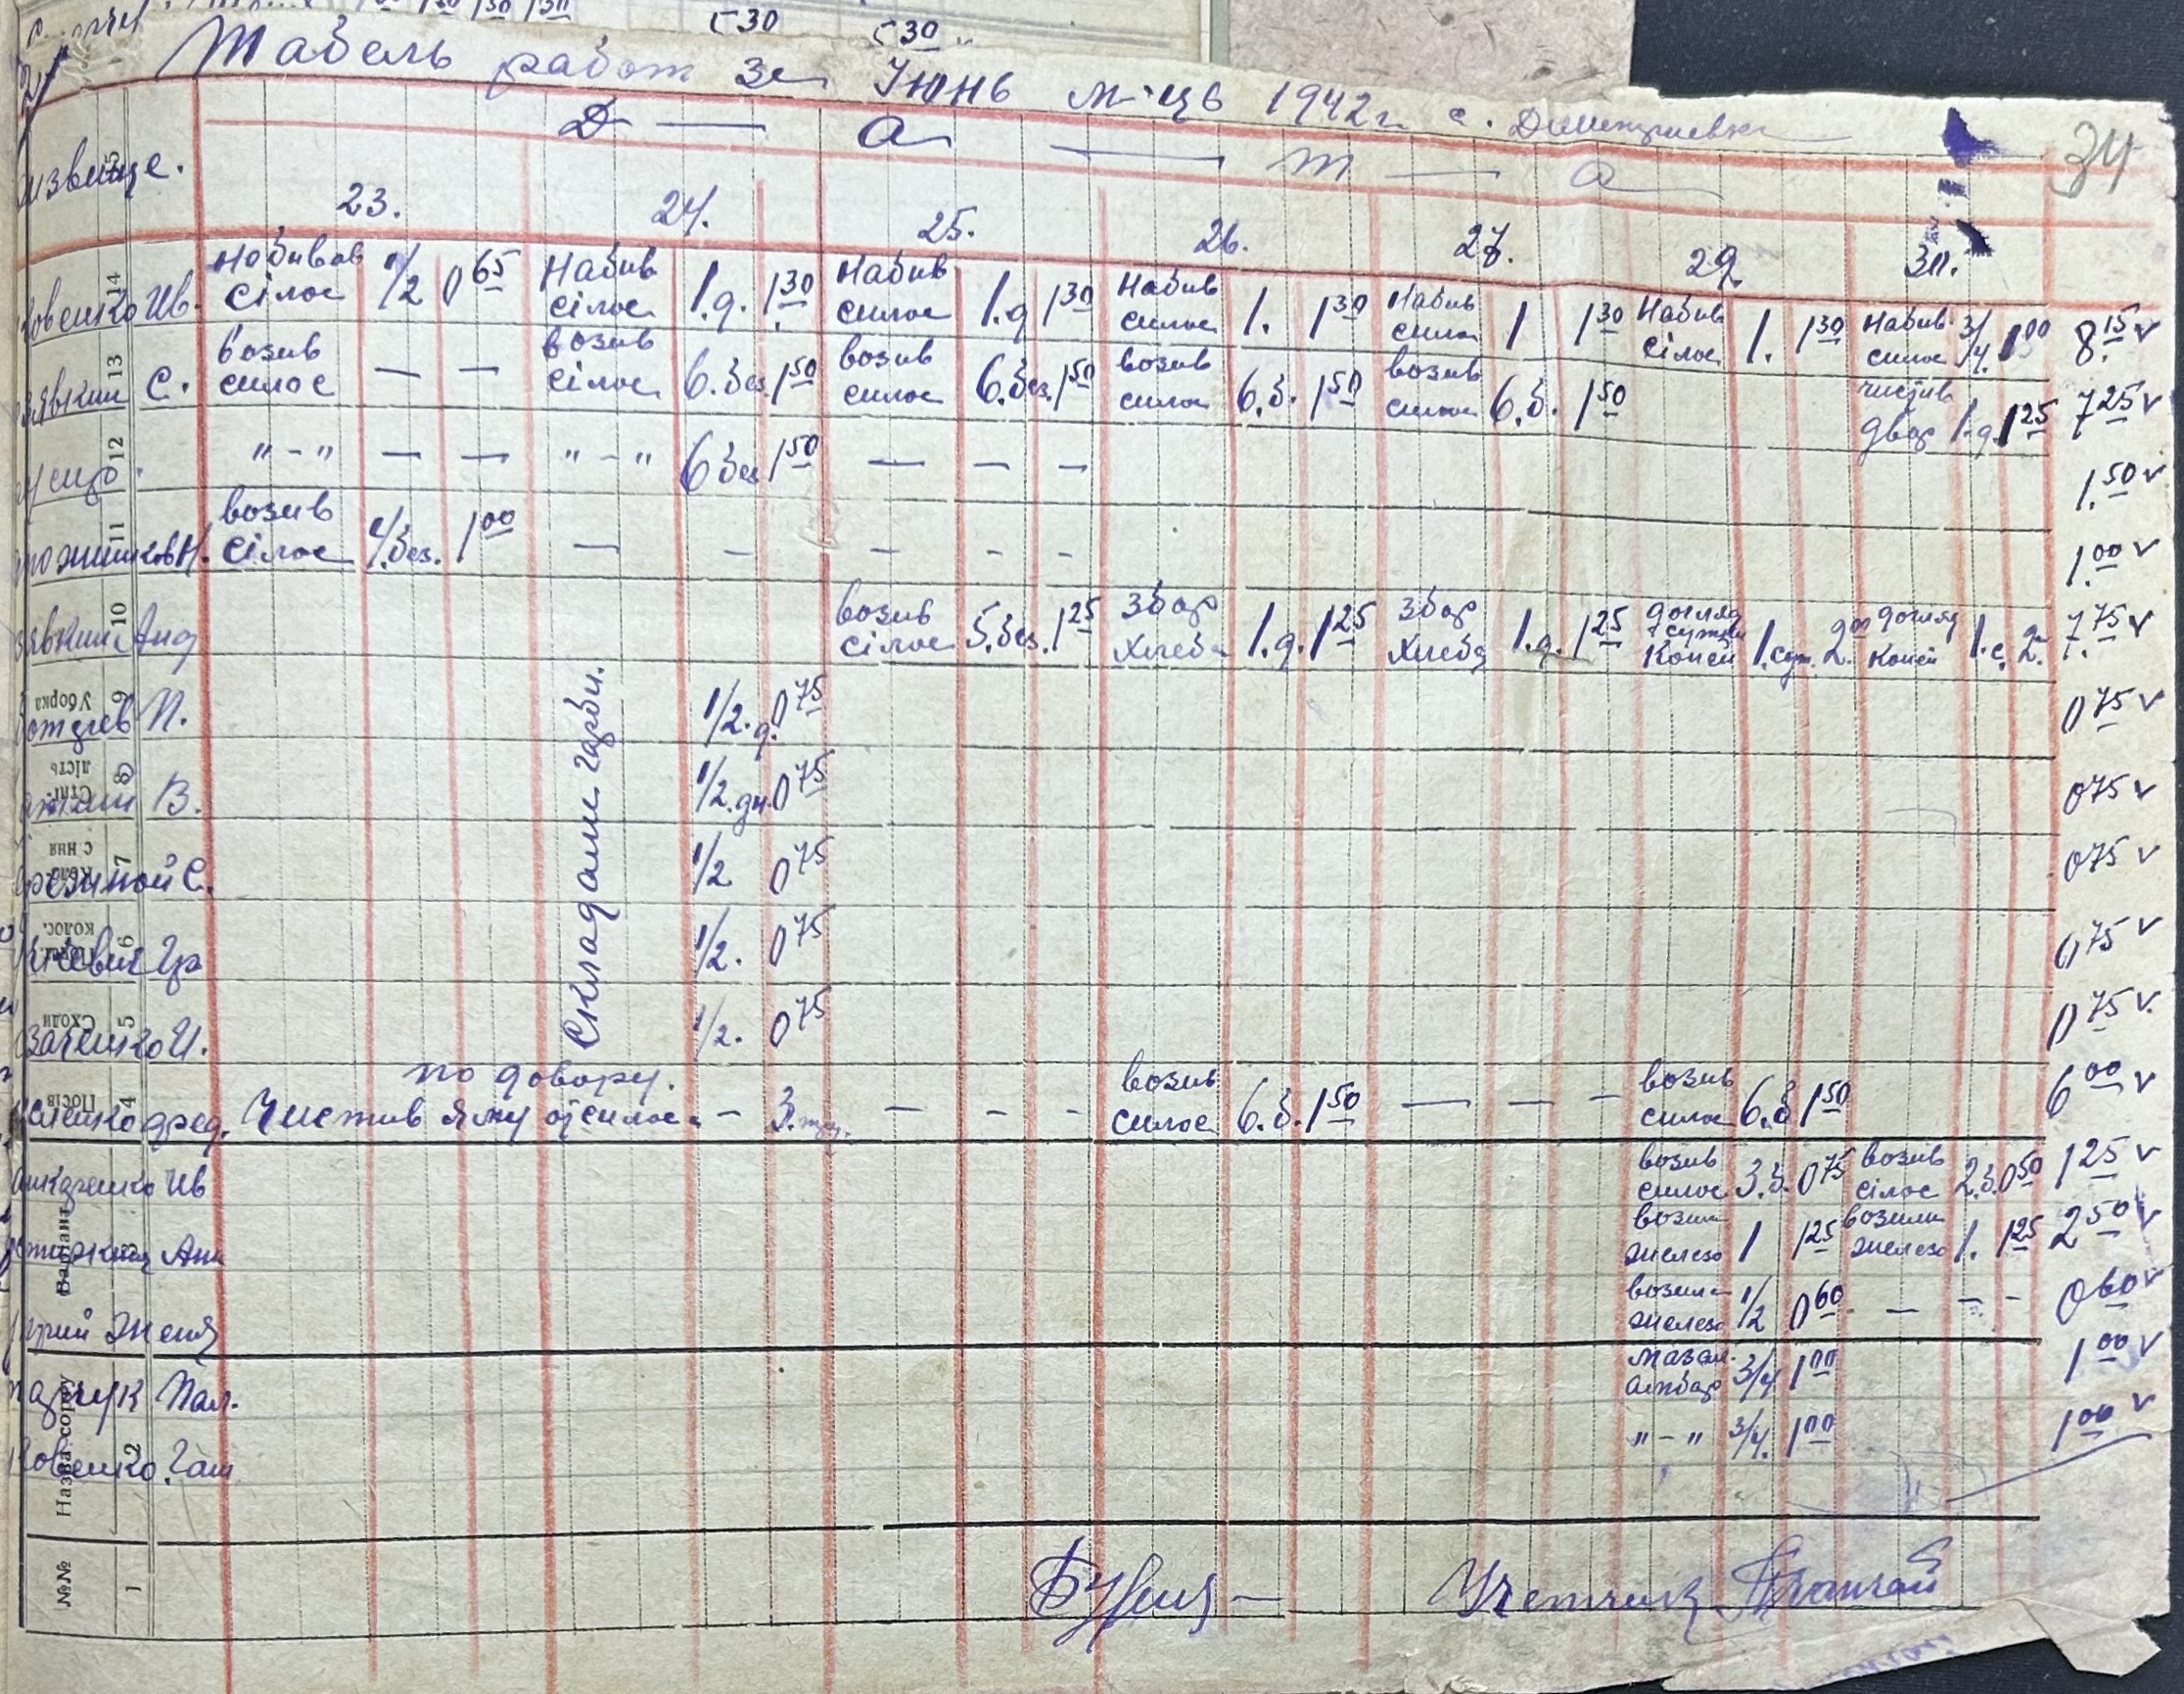 530 530
Табель работ за Июнь м-ць 1942г. с.
34
Д — а — т — а
извеще.
23. 24. 25. 26. 27. 29. 30.
овенко Ив. Набивав сілос 1/2 0 65 Набив сілос 1.д. 1 30 Набив силос 1.д 1 30 Набив силос 1. 1 30 Набив силос 1 1 30 Набив сілос 1. 1 30 Набив силос 3/4. 1 00 8.15 v
явкин С. возив силос — — возив сілос 6.без. 1 50 возив силос 6.без. 1 50 возив силос 6.б. 1 50 возив силос 6.б. 1 50 чистив двор 1.д. 1 25 7 25 v
" - " — — " - " 6 без 1 50 — — — 1.50 v
Н. возив сілос 4/без. 1 00 — — — — — 1.00 v
явкин Анд возив сілос 5.без. 1 25 збор хлеба 1.д. 1 25 збор хлеба 1.д. 1 25 догляд сутки коней 1.сут. 2.00 догляд коней 1.с. 2. 7.75 v
Складали гарби.
П. 1/2.д. 0 75 0 75 v
В. 1/2.дн. 0 75 0 75 v
С. 1/2 0 75 0 75 v
Гр 1/2. 0 75 0 75 v
заченко И. 1/2. 0 75 0 75 v
по довору.
енко фред. Чистив яму от силоса — 3. — — — возив силос 6.б. 1 50 — — — возив силос 6.б 1 50 6 00 v
Ив возив силос 3.б. 0 75 возив сілос 2.б. 0 50 1 25 v
Анн возили железо 1 1 25 возили железо 1. 1 25 2 50 v
Женя возила железо 1/2 0 60 — — — 0 60 v
Пал. мазал. амбар 3/4 1 00 1 00 v
овенко Гаш " - " 3/4. 1 00 1 00 v
Учетчик
№№ Назва сорту Варіант Посів Сходи колос. Уборка
1 2 3 4 5 6 7 8 9 10 11 12 13 14 15